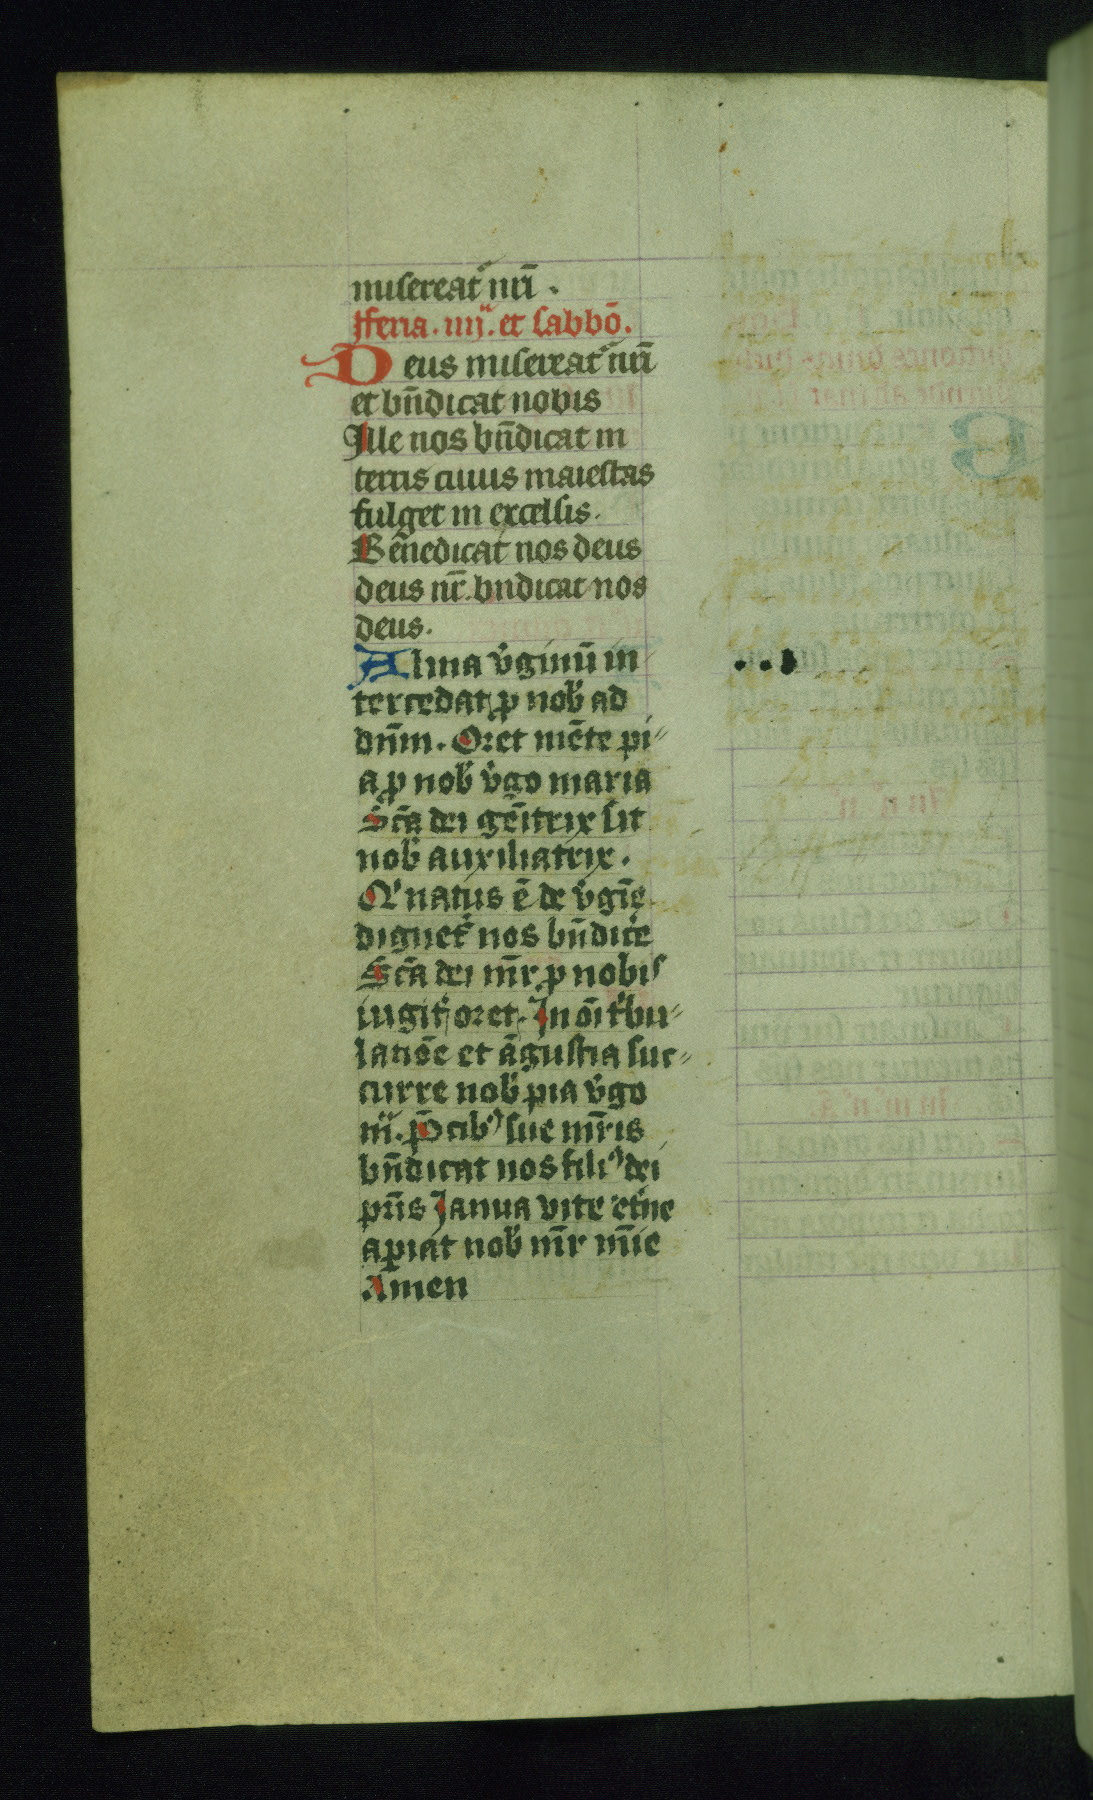 misereat᷑ nr̄i .
Fferia . iiij. et sabbō.
Deus misereat᷑ nr̄i
et bn̄dicat nobis
Ille nos bn̄dicat in
terris cuius maiestas
fulget in excelsis.
Bēnedicat nos deus
deus nr̄. bndicat nos
deus.
Alma v̓ginū in
tercedat ꝓ nob̓ ad
dn̄m. Oret mēte pi-
a ꝓ nob̓ v̓go maria
Sc̄a dei gēitrix sit
nob̓ auxiliatrix.
Qi natus ē de v̓gīe
dignet᷑ nos bn̄dic̓e
Sc̄a dei mr̄ ꝓ nobis
iugit̓ oret. In oī t̓bu-
latiōe et āgustia suc-
curre nob̓ pia v̓go
m̄. P̄cibꝰ sue mr̄is
bn̄dicat nos filiꝰ dei
pr̄is Janua vite et̓ne
apiat nob̓ mr̄ mīe
Amen